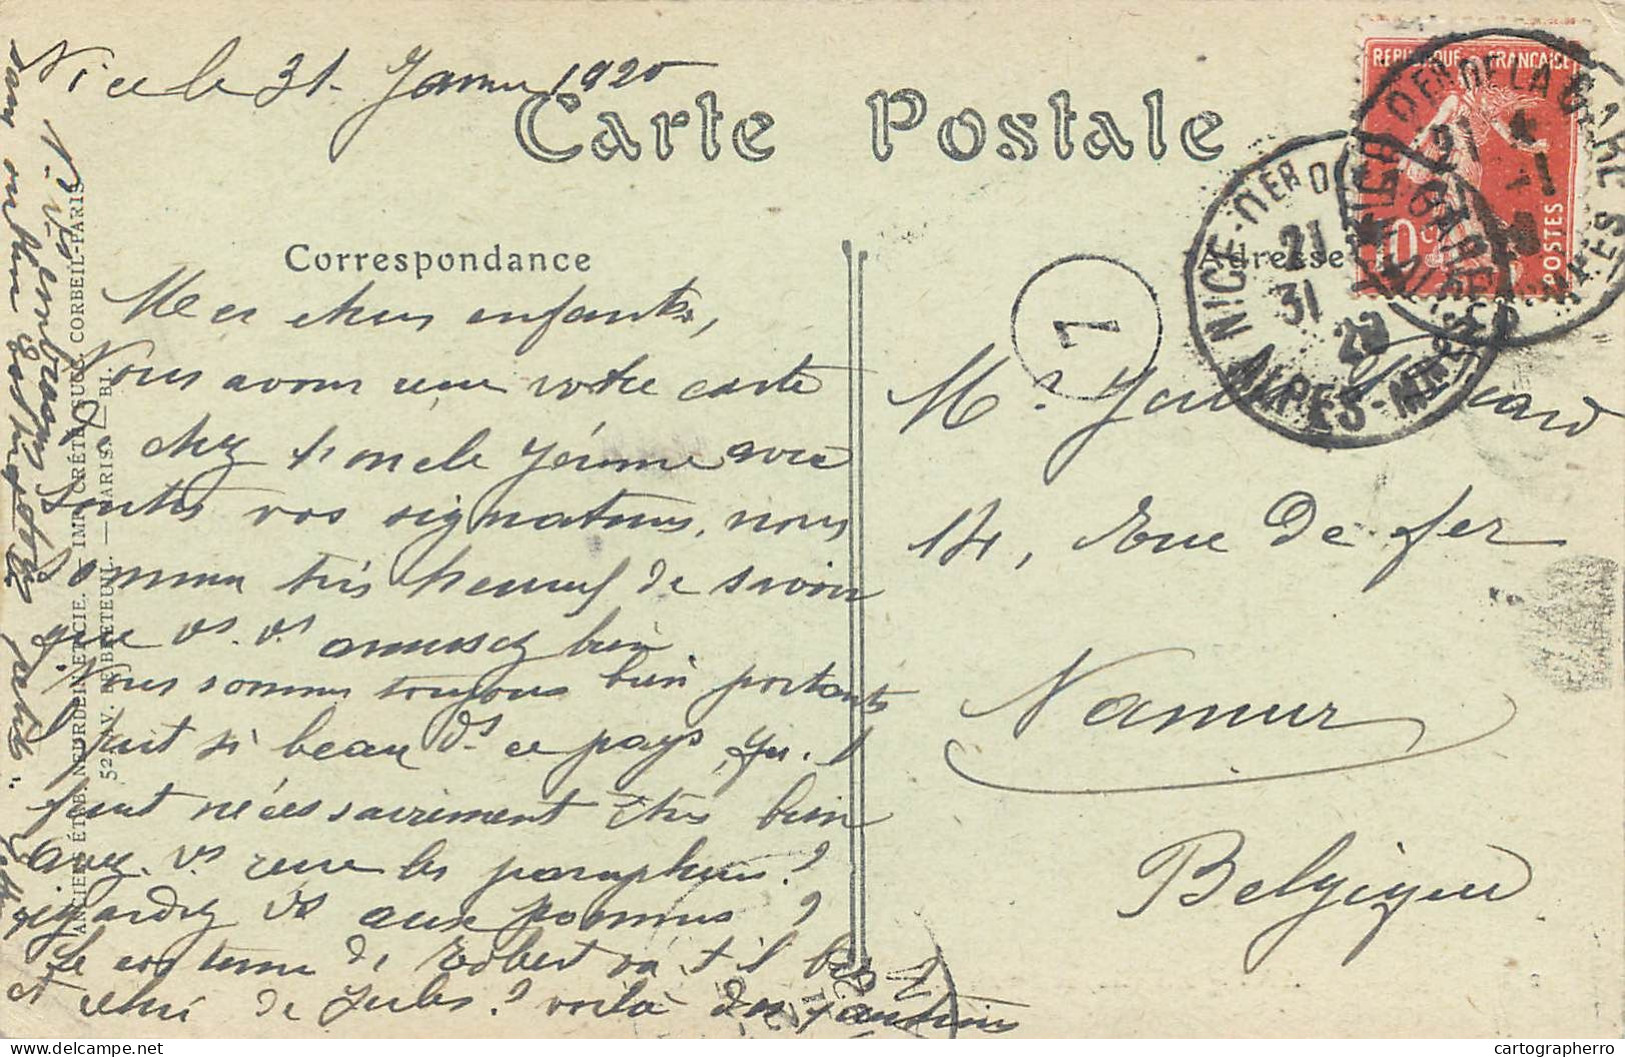 Nice le 31 Janv 1920
Carte Postale
Correspondance
Adresse
Mes chers enfants,
Nous avons reçu votre carte
chez l'oncle Jérôme avec
toutes vos signatures, nous
sommes très heureux de savoir
que vs. vs amusez bien.
Nous sommes toujours bien portants
fait si beau ds ce pays, qu'il
faut nécessairement être bien
avez. vs reçu les parapluies?
regardez vs aux pommes?
Le costume de Robert va t'il bien
et celui de Jules? voilà des
Ns embrassons
sans oublier petits
Mr Jules
14, Rue de fer
Namur
Belgique
1
REPUBLIQUE FRANÇAISE
10c
POSTES
NICE
GARE
ALPES-MMES
21
31
20
ANCIENS ETAB. NEURDEIN ET CIE. — IMP. CRÉTÉ SUCC. CORBEIL-PARIS
52, AV. DE BRETEUIL. — PARIS. — BI.
cartographerro